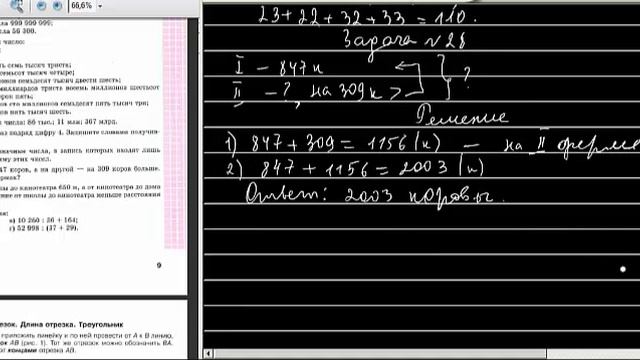 66,6%
ла 999 999 999;
сла 56 300.
число:
ь семь тысяч триста;
семьсот тысяч четыре;
ионов семьдесят тысяч двести шесть;
миллиардов триста восемь миллионов шестьсот
орок пять;
ов сто миллионов семьдесят пять тысяч три;
ов пять тысяч шесть.
числа: 86 тыс.; 11 млн; 367 млрд.
аз подряд цифру 4. Запишите словами получив-
значные числа, в запись которых входят лишь
мму этих чисел.
47 коров, а на другой — на 309 коров больше.
ермах?
лы до кинотеатра 650 м, а от кинотеатра до дома
ние от школы до кинотеатра меньше расстояния
в) 10 260 : 36 + 164;
г) 52 998 : (37 + 29).
9
езок. Длина отрезка. Треугольник
приложить линейку и по ней провести от A к B линию,
зок AB (рис. 1). Тот же отрезок можно обозначить BA.
от концами отрезка AB.
23 + 22 + 32 + 33 = 110.
Задача N 28
I – 847 к
II – ? на 309 к > ?
Решение
1) 847 + 309 = 1156 (к) — на II ферме
2) 847 + 1156 = 2003 (к)
Ответ: 2003 коровы.